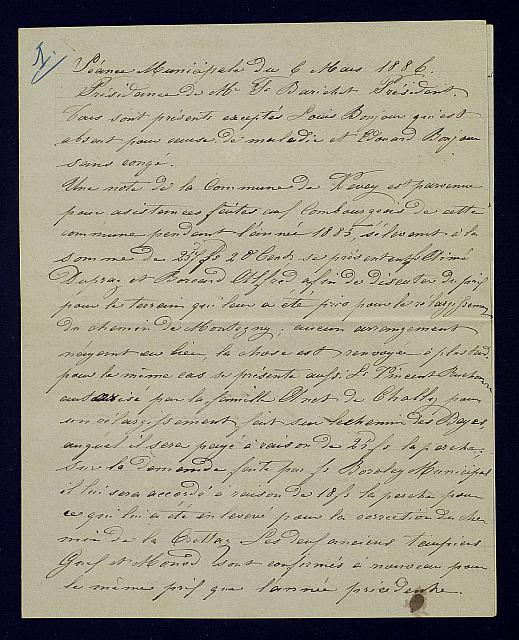 Séance Municipale du 6 Mars 1886.
Présidence de Mr Fs Barichet Président.
Tous sont présents exceptés Louis Bonjour qui est
absent pour cause de maladie et Edouard Bonjour
sans congé.
Une note de la Commune de Vevey est parvenue
pour asistances faites aux Combourgeois de cette
commune pendant l'année 1885 s'élevant à la
somme de 28 Cent. se présentent Aimé
Dupraz et Alfred afin de discuter du prix
pour le terrain qui leur a été pris pour le rélargissement
du chemin de Montegny; aucun arrangement
n'ayant eu lieu, la chose est renvoyée à plus tard.
pour le même cas se présente aussi Vincent
autorisé par la famille de Chailly pour
un rélargissement fait sur le chemin des Bayes
auquel il sera payé à raison de la perche;
Sur la demande faite par Fs Borloley Municipal
il lui sera accordé à raison de 18 fs la perche pour
ce qui lui a été enlevé pour la correction du che
min de la Crettaz; Les deux anciens taupiers
et Monod sont confirmés à nouveau pour
le même prix que l'année précédente.